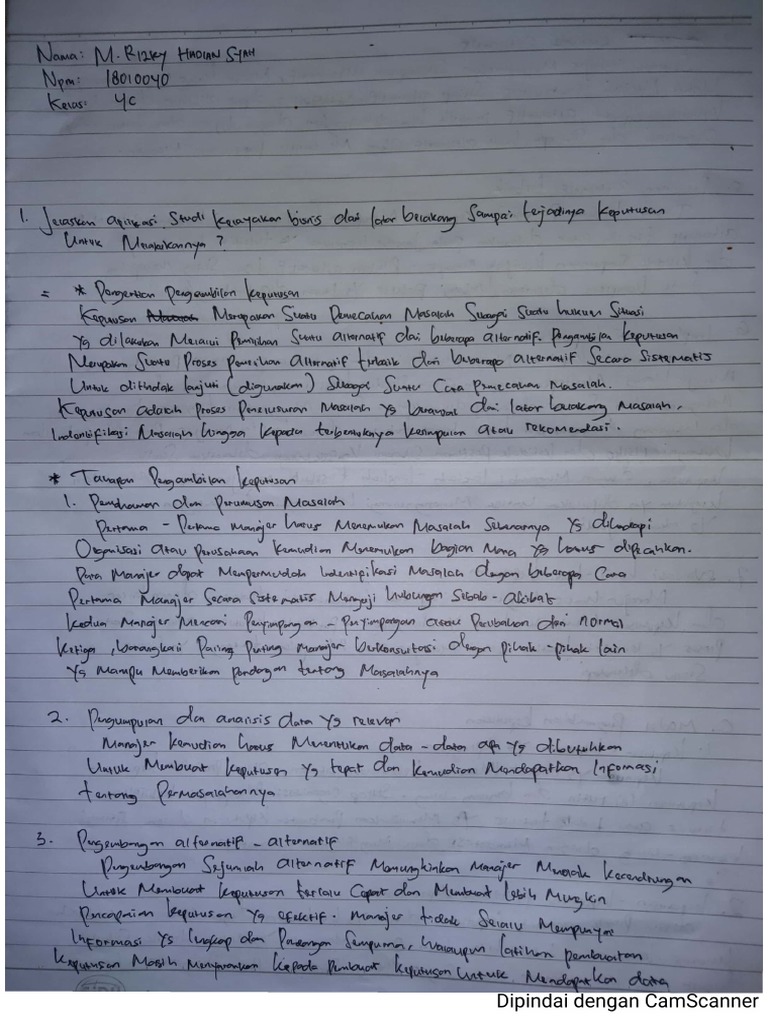 Nama: M. RIZKY HADIAN SYAH
Npm: 18010040
Kelas: 4C
1. Jelaskan aplikasi Studi Kelayakan bisnis dari latar belakang Sampai terjadinya Keputusan
Untuk Menjalankannya ?
= * Pengertian Pengambilan Keputusan
Keputusan Merupakan Suatu Pemecahan Masalah Sebagai Suatu hukum Situasi
Yg dilakukan Melalui Pemilihan Suatu alternatif dari beberapa alternatif. Pengambilan Keputusan
Merupakan Suatu Proses pemilihan Alternatif terbaik dari beberapa alternatif Secara Sistematis
Untuk ditindak lanjuti (digunakan) Sebagai Suatu Cara Pemecahan Masalah.
Keputusan adalah proses Penelusuran Masalah Yg berawal dari latar belakang Masalah,
Indentifikasi Masalah hingga kepada terbentuknya kesimpulan atau rekomendasi.
* Tahapan Pengambilan Keputusan
1. Pemahaman dan Perumusan Masalah
Pertama - Pertama Manajer harus Menemukan Masalah Sebenarnya Yg dihadapi
Organisasi atau perusahaan kemudian Menemukan bagian Mana Yg harus dipecahkan.
Para Manajer dapat Mempermudah Indentipikasi Masalah dengan beberapa Cara
Pertama Manajer Secara Sistematis Menguji hubungan Sebab-akibat
Kedua Manajer Mencari Penyimpangan - Penyimpangan atau Perubahan dari normal
Ketiga, barangkali Paling Penting Manajer berkonsultasi dengan pihak-pihak lain
Yg Mampu Memberikan Pandangan tentang Masalahnya
2. Pengumpulan dan analisis data Yg relevan
Manajer Kemudian harus Menentukan data-data apa Yg dibutuhkan
Untuk Membuat Keputusan Yg tepat dan Kemudian Mendapatkan Informasi
tentang Permasalahannya
3. Pengembangan alternatif - alternatif
Pengembangan Sejumlah alternatif Memungkinkan Manajer Menolak Kecendrungan
Untuk Membuat Keputusan terlalu Cepat dan Membuat lebih Mungkin
Pencapaian Keputusan Yg efektif. Manajer tidak Selalu Mempunyai
Informasi Yg lengkap dan Pandangan Sempurna, Walaupun latihan pembuatan
Keputusan Masih Menyarankan Kepada Pembuat Keputusan Untuk Mendapatkan data
Dipindai dengan CamScanner